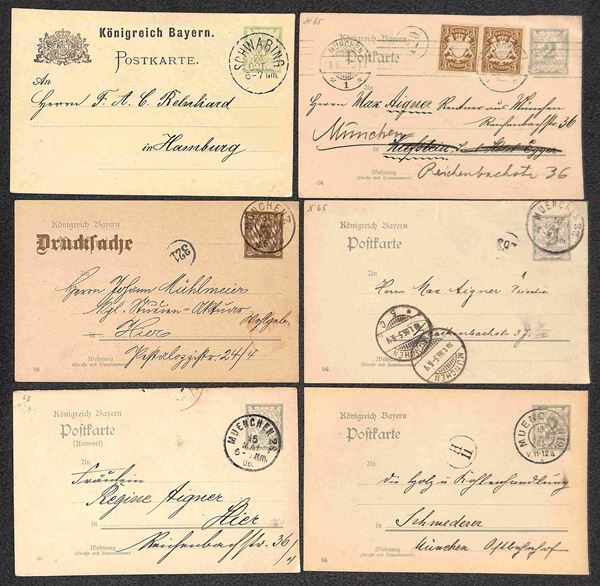 Königreich Bayern.
POSTKARTE.
SCHWABING
6-7 Nm.
An
Herrn F. A. C. Reinhard
in Hamburg
K 65
Königreich Bayern
Postkarte
MÜNCHEN
1
2
An
Herrn Max Aigner Rentner aus München
Reichenbachstr 36
München
in Kufstein,
Reichenbachstr 36
Wohnung
(Straße und Hausnummer)
04
Königreich Bayern
Drucksache
321
MÜNCHEN 7
An
Herrn Johann Mühlmeier
Kgl.
in Hier
Pestalozzistr. 24/4
Wohnung
(Straße und Hausnummer)
06
K 65
Königreich Bayern
Postkarte
MUENCHEN 26
An
Herrn Max Aigner
in
MÜNCHEN
MÜNCHEN
Wohnung
(Straße und Hausnummer)
06
Königreich Bayern
Postkarte
(Antwort)
MUENCHEN 26
15
MAI
6-7 Nm.
06.
An
Fräulein
Regine Aigner
in Hier
Reichenbachstr. 36/4
Wohnung
(Straße und Hausnummer)
06
Königreich Bayern
Postkarte
MUENCHEN 10
V. 11-12
2
An
die Holz u Kohlenhandlung
in Schmederer
München Ostbahnhof
Wohnung
(Straße und Hausnummer)
04